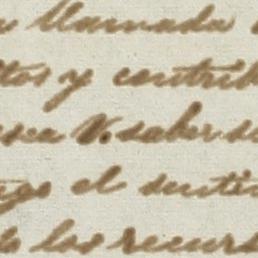 llamada
tos y contrib
sea V. saber s
go el senti
los recurs